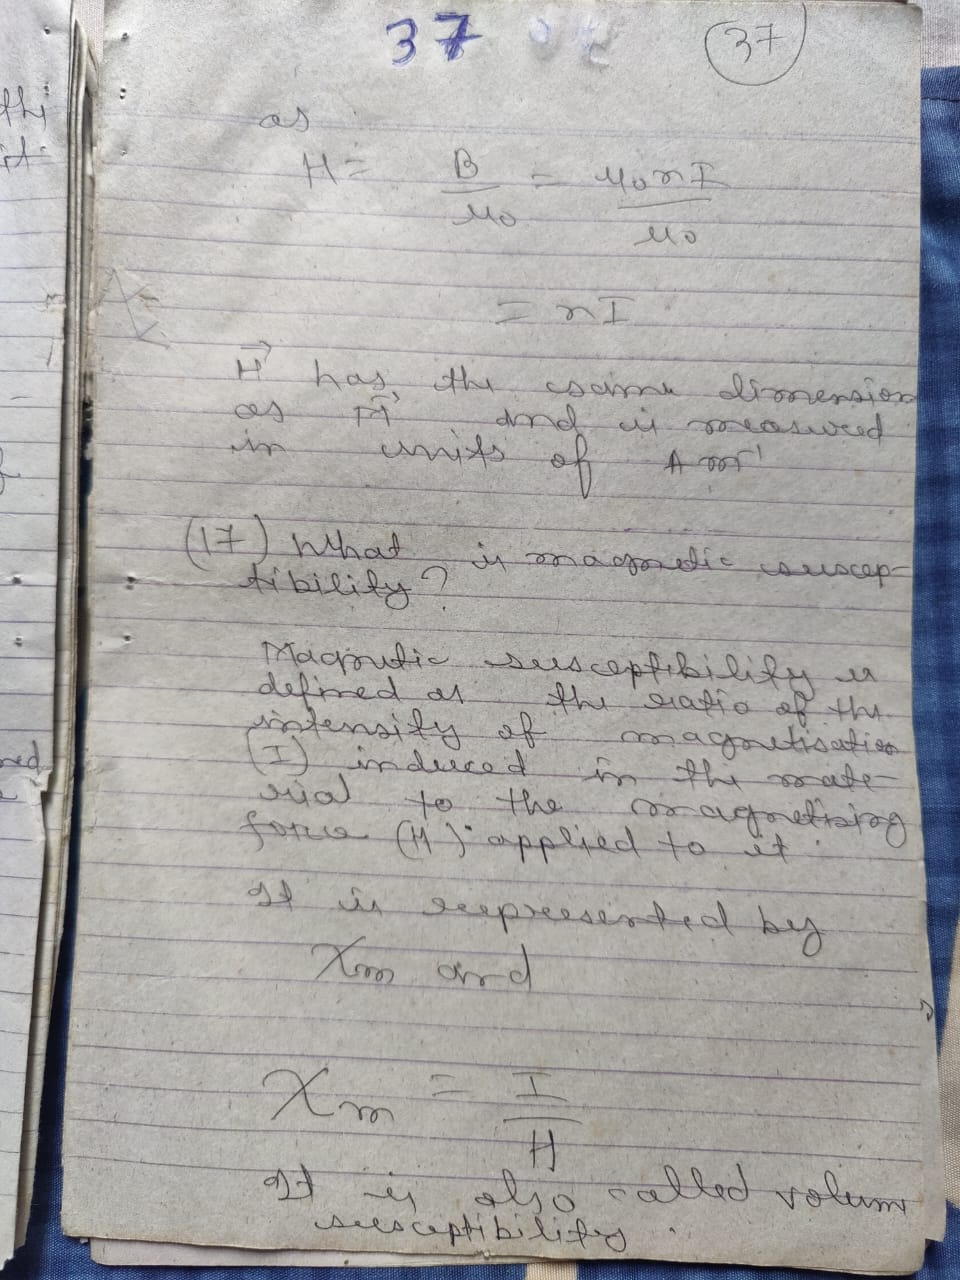 37
37
as
H = B/μ0 = μ0nI/μ0
= nI
H⃗ has the same dimension
as M⃗ and is measured
in units of A m⁻¹
(17) What is magnetic suscep-
tibility?
Magnetic susceptibility is
defined as the ratio of the
intensity of magnetisation
(I) induced in the mate-
rial to the magnetising
force (H) applied to it.
It is represented by
χm and
χm = I/H
It is also called volum
susceptibility.